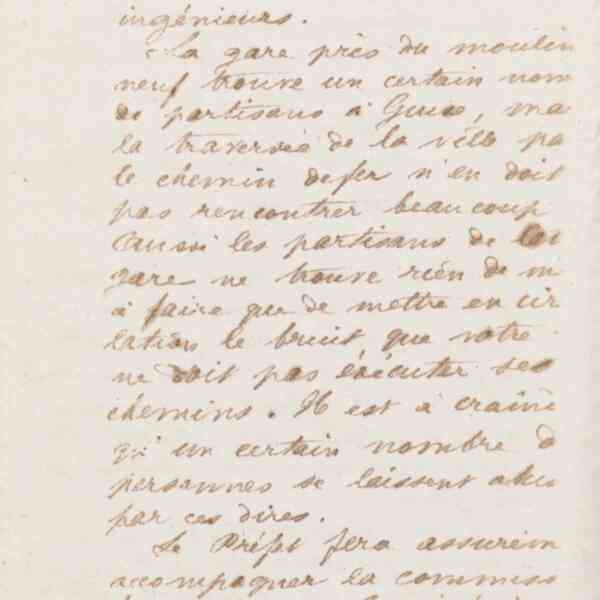 ingénieurs.
La gare près du moulin
neuf trouve un certain nom
de partisans à Guise, ma
la traversée de la ville pa
le chemin de fer n'en doit
pas rencontrer beaucoup
Aussi les partisans de
gare ne trouve rien de m
à faire que de mettre en cir
lation le bruit que notre
ne doit pas exécuter ses
chemins. Il est à craind
qu'un certain nombre d
personnes se laissent abu
par ces dires.
Le Préfet fera assurém
accompagner la commiss